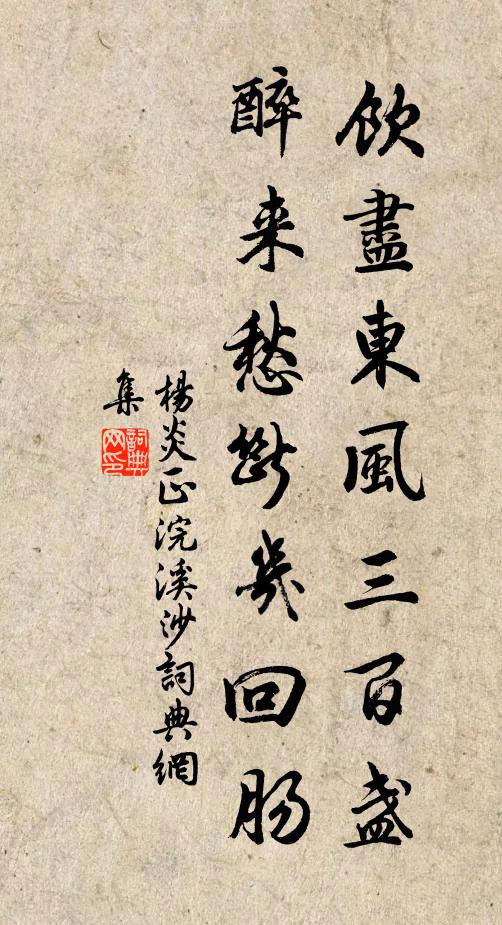 飲盡東風三百盞
醉来愁斷幾回腸
楊炎正浣溪沙詞典網
集
詞典
网印